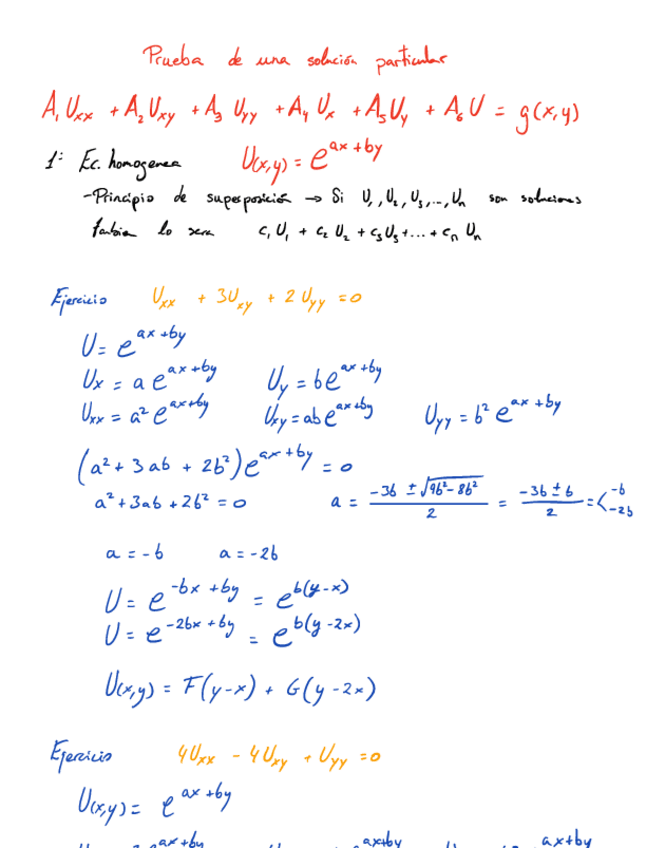 Prueba de una solución particular
A₁ Uxx + A₂ Uxy + A₃ Uyy + A₄ Ux + A₅ Uy + A₆ U = g(x,y)
1: Ec. homogenea U(x,y) = e^(ax+by)
-Principio de superposición → Si U₁, U₂, U₃, ..., Un son soluciones
tambien lo sera c₁ U₁ + c₂ U₂ + c₃ U₃ + ... + cn Un
Ejercicio Uxx + 3Uxy + 2 Uyy = 0
U = e^(ax+by)
Ux = a e^(ax+by) Uy = b e^(ax+by)
Uxx = a² e^(ax+by) Uxy = ab e^(ax+by) Uyy = b² e^(ax+by)
(a² + 3ab + 2b²) e^(ax+by) = 0
a² + 3ab + 2b² = 0 a = (-3b ± √(9b² - 8b²))/2 = (-3b ± b)/2 = < -b -2b
a = -b a = -2b
U = e^(-bx+by) = e^(b(y-x))
U = e^(-2bx+by) = e^(b(y-2x))
U(x,y) = F(y-x) + G(y-2x)
Ejercicio 4Uxx - 4Uxy + Uyy = 0
U(x,y) = e^(ax+by)